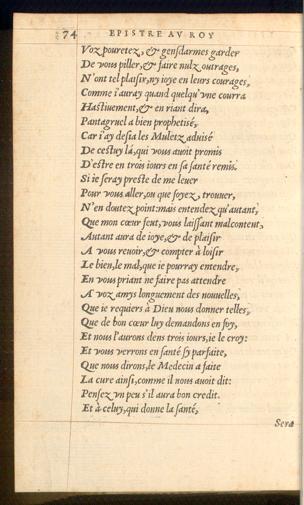 74 EPISTRE AV ROY
Voz pouretez, & gensdarmes garder
De vous piller, & faire nulz outrages,
N'ont tel plaisir, ny ioye en leurs courages,
Comme i'auray quand quelqu'vne courra
Hastiuement, & en riant dira,
Pantagruel a bien prophetisé,
Car i'ay desia les Muletz aduisé
De cestuy là, qui vous auoit promis
D'estre en trois iours en sa santé remis.
Si ie seray preste de me leuer
Pour vous aller, ou que soyez, trouuer,
N'en doutez point: mais entendez qu'autant,
Que mon cœur sent, vous laissant malcontent,
Autant aura de ioye, & de plaisir
A vous reuoir, & compter à loisir
Le bien, le mal, que ie pourray entendre,
En vous priant ne faire pas attendre
A voz amys longuement des nouuelles,
Que ie requiers à Dieu nous donner telles,
Que de bon cœur luy demandons en foy,
Et nous l'aurons dens trois iours, ie le croy:
Et vous verrons en santé sy parfaite,
Que nous dirons, le Medecin a faite
La cure ainsi, comme il nous auoit dit:
Pensez vn peu s'il aura bon credit.
Et à celuy, qui donne la santé,
Sera